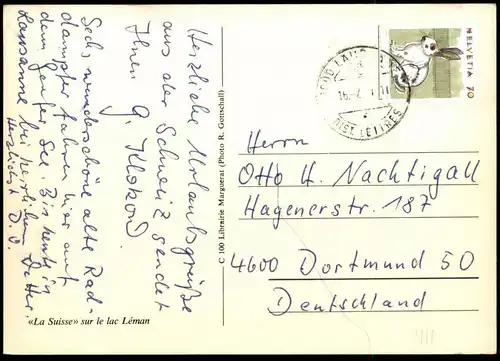 Herzliche Urlaubsgrüße
aus der Schweiz sendet
Ihnen G.
Sechs wunderschöne alte Rad-
dampfer fahren hier auf
dem Genfer See. Bin heute in
Lausanne bei herrlichem Wetter.
Herzlichst D. O.
«La Suisse» sur le lac Léman
C 100 Librairie Marguerat (Photo R. Gottschall)
HELVETIA 70
1000 LAU
DIST LETTRES
Herrn
Otto H. Nachtigall
Hagenerstr. 187
4600 Dortmund 50
Deutschland